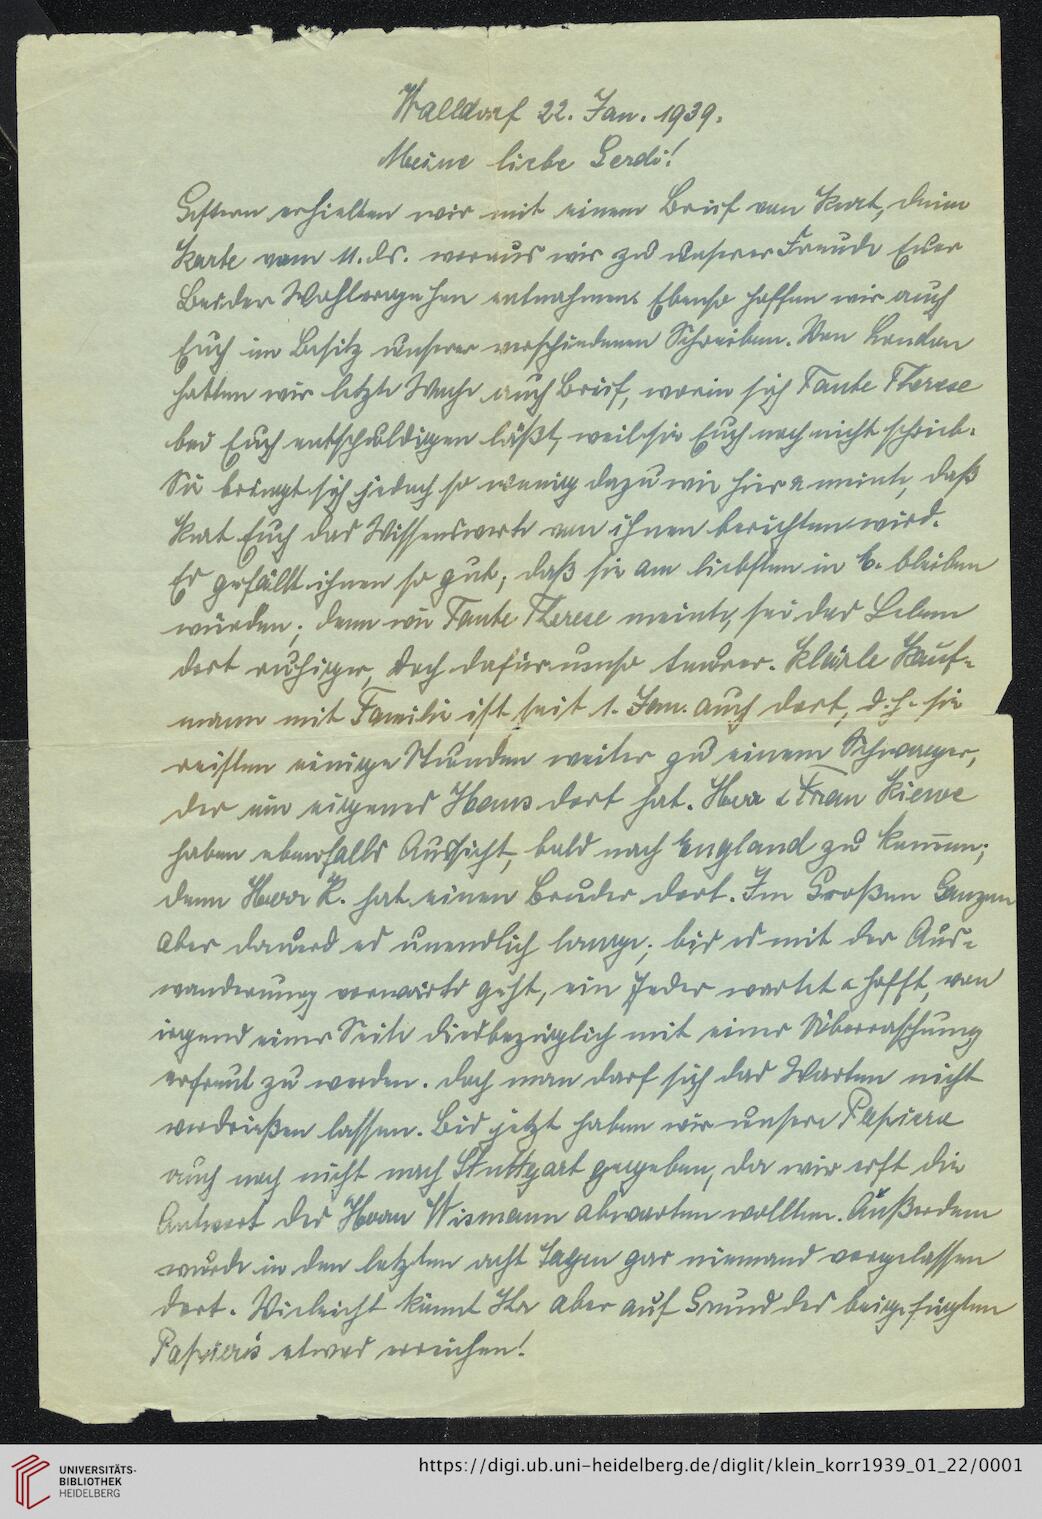 Walldorf 22. Jan. 1939.
Meine liebe Gerdi!
Gestern erhielten wir mit einem Brief von Kurt, deine
Karte vom 11. ds. woraus wir zu unserer Freude Euer
Beider Wohlergehen entnahmen. Ebenso hoffen wir auch
Euch im Besitz unserer verschiedenen Schreiben. Von London
hatten wir letzte Woche auch Brief, worin sich Tante Therese
bei Euch entschuldigen läßt, weil sie Euch noch nicht schrieb.
Sie bringt sich jedoch so wenig dazu wie hier & meinte, daß
Kurt Euch das Wissenswerte von ihnen berichten wird.
Es gefällt ihnen so gut, daß sie am liebsten in E. bleiben
würden; denn wie Tante Therese meinte, sei das Leben
dort ruhiger, doch dafür umso teurer. Klärle Kauf-
mann mit Familie ist seit 1. Jan. auch dort, d. h. sie
reisten einige Stunden weiter zu einem Schwager,
der ein eigenes Haus dort hat. Herr & Frau Kiewe
haben ebenfalls Aussicht, bald nach England zu kommen;
denn Herr K. hat einen Bruder dort. Im Großen Ganzen
aber dauerd es unendlich lange, bis es mit der Aus-
wanderung vorwärts geht, ein Jeder wartet & hofft, von
irgend einer Seite diesbezüglich mit einer Überraschung
erfreut zu werden. Doch man darf sich das Warten nicht
verdrießen lassen. Bis jetzt haben wir unsere Papiere
auch noch nicht nach Stuttgart gegeben, da wir erst die
Antwort des Herrn Wismann abwarten wollten. Außerdem
wurde in den letzten acht Tagen gar niemand vorgelassen
dort. Vieleicht könnt Ihr aber auf Grund des beigefügten
Papieres etwas erreichen!
UNIVERSITÄTS-
BIBLIOTHEK
HEIDELBERG
https://digi.ub.uni-heidelberg.de/diglit/klein_korr1939_01_22/0001